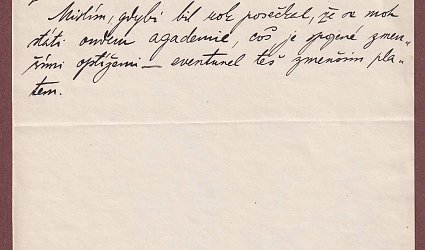 Mislím, gdybi bil rok posečkal, že se moh
státi onďem agademie, což je spojené zmen-
šími optížemi — eventunel těš zmenším pla-
tem.